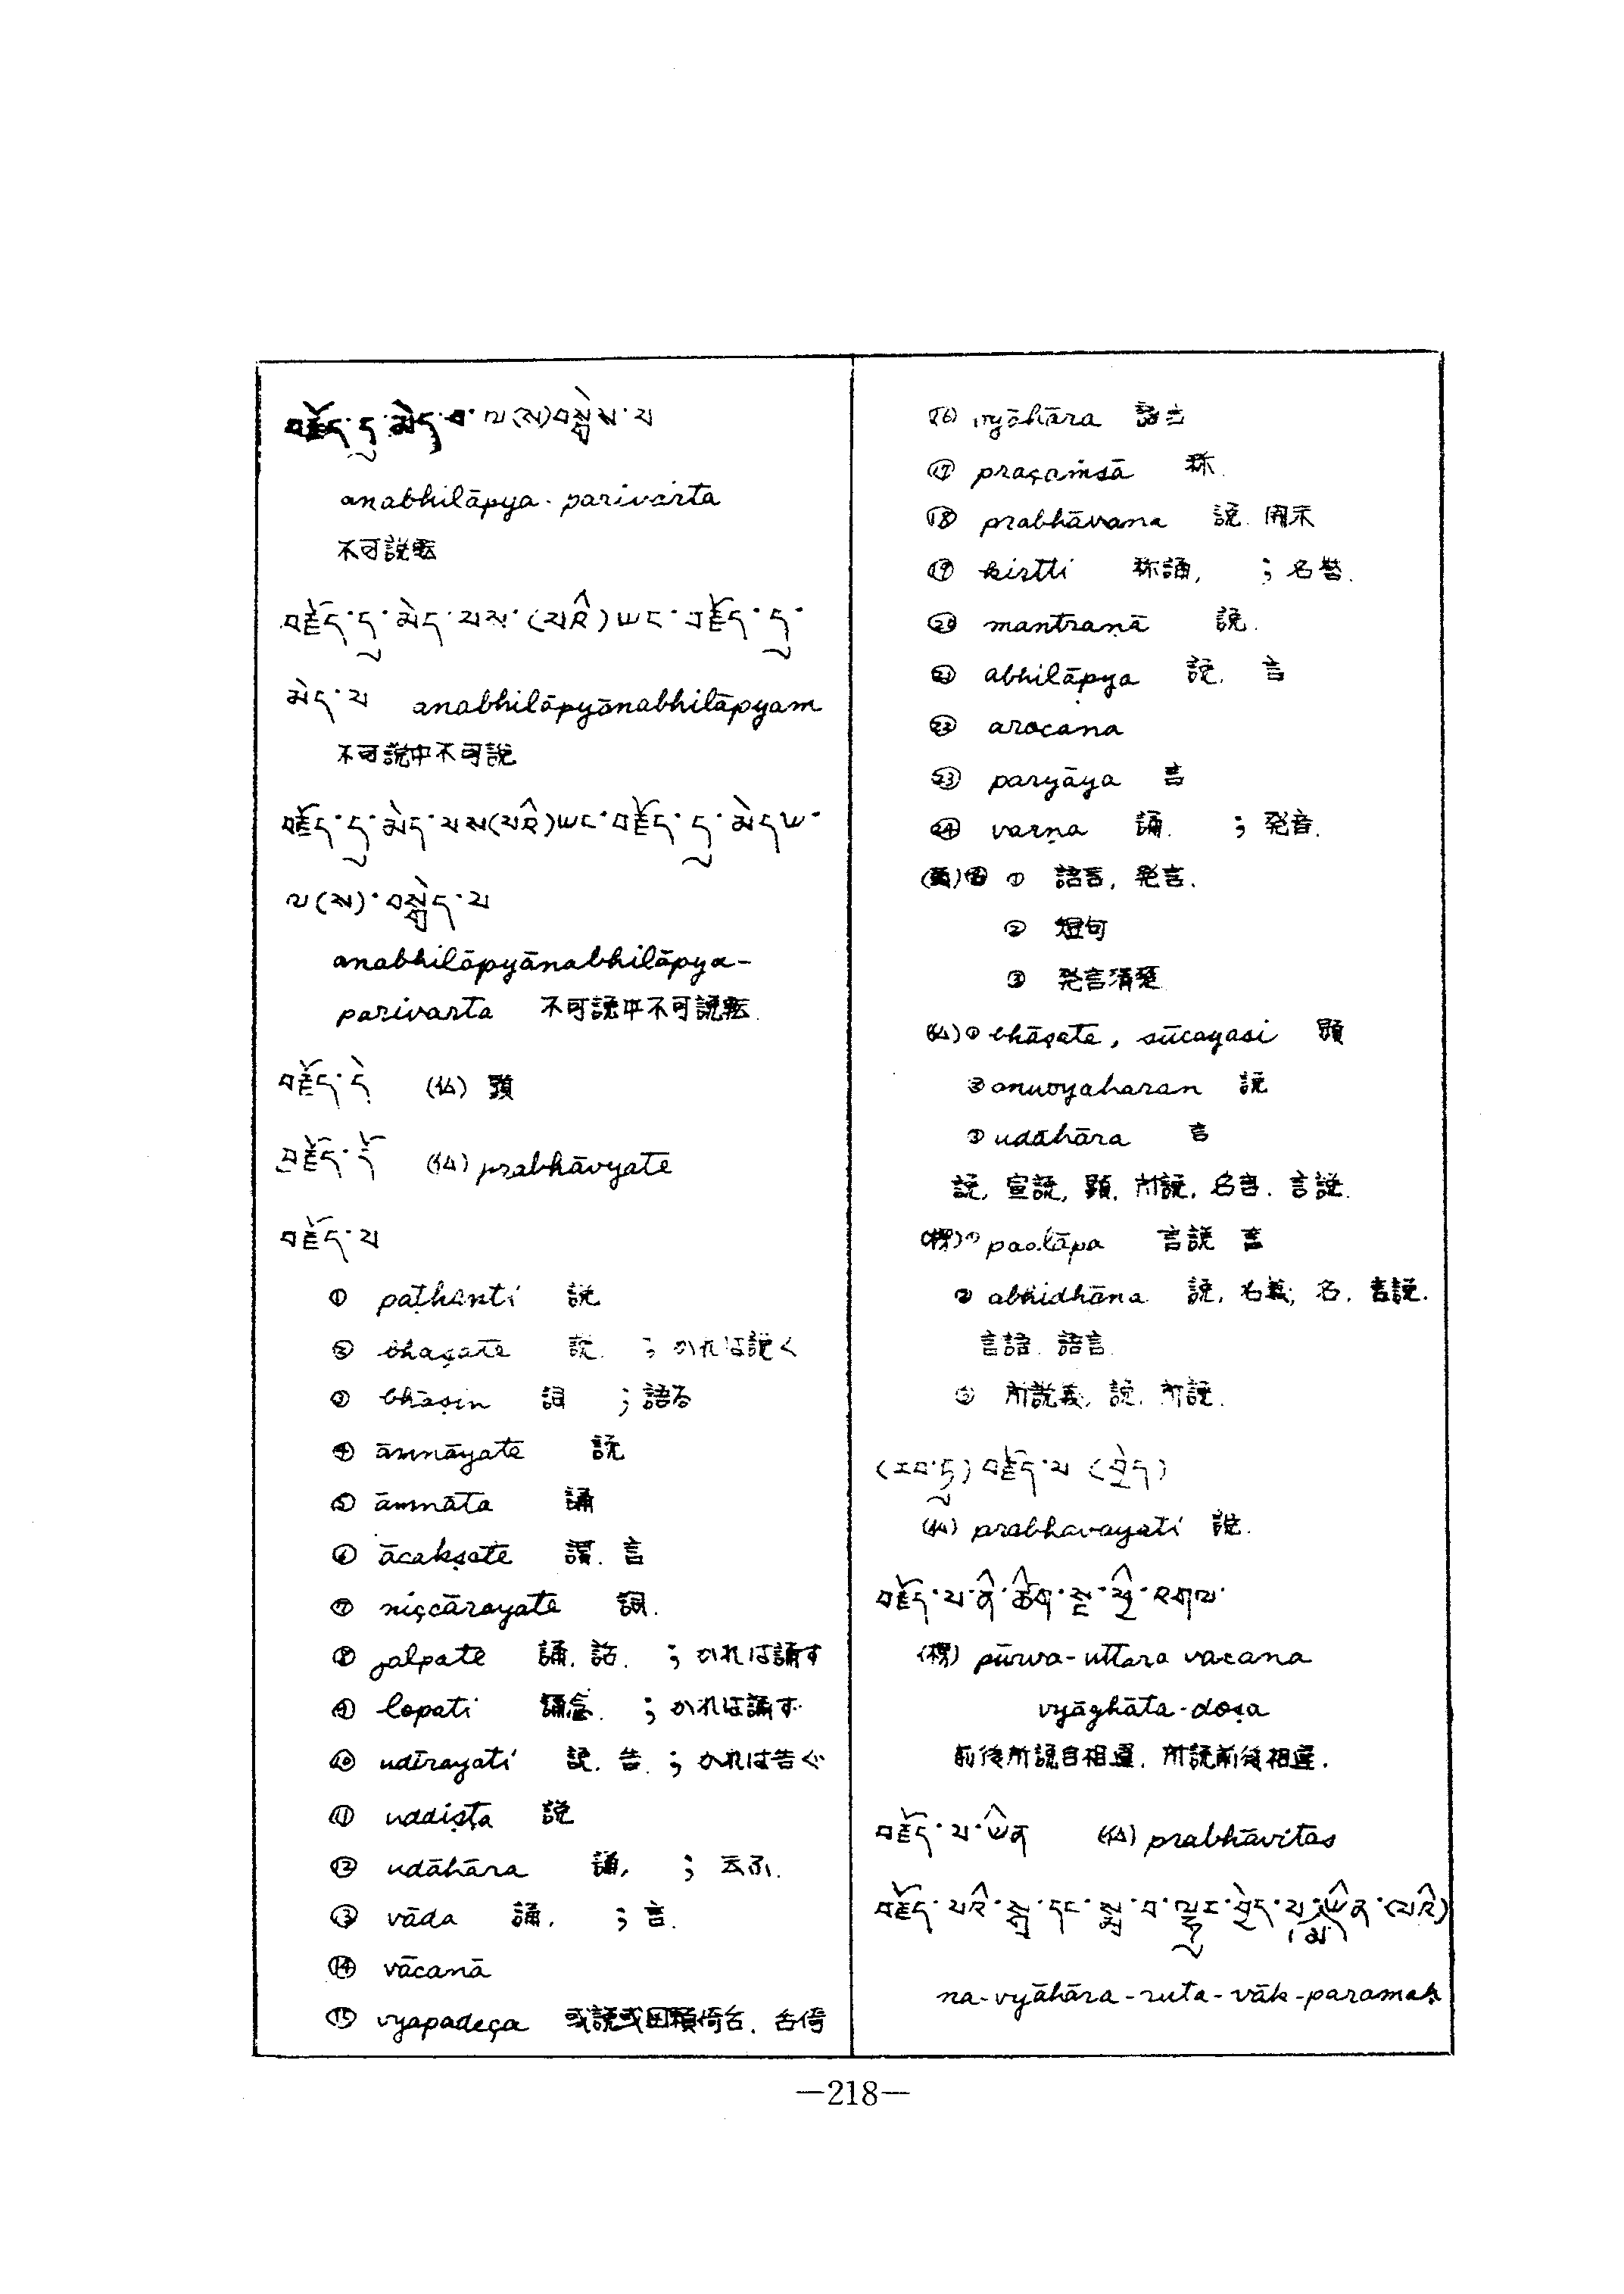 བརྗོད་དུ་མེད་པ་ལ(ས)བསྐྱེས་པ
anabhilāpya-parivarta
不可説転
བརྗོད་དུ་མེད་པས་(པའི)ཡང་བརྗོད་དུ་
མེད་པ anabhilāpyānabhilāpyam
不可説中不可説
བརྗོད་དུ་མེད་པས(པའི)ཡང་བརྗོད་དུ་མེདཔ་
ལ(ས)་བསྐྱེད་པ
anabhilāpyānabhilāpya-
parivarta 不可説中不可説転.
བརྗོད་དེ (仏) 顕
བརྗོད་དོ (仏) prabhāvyate
བརྗོད་པ
① paṭhanti 説
② bhaṣate 説. ; かれは説く
③ bhāṣin 詞 ; 語る
④ āmnāyate 説
⑤ āmnāta 誦
⑥ ācakṣate 謂. 言
⑦ niçcārayate 詞.
⑧ jalpate 誦, 話. ; かれは誦す
⑨ lapati 誦念. ; かれは誦す
⑩ udīrayati 説. 告. ; かれは告ぐ
⑪ uddiṣṭa 説
⑫ udāhāra 誦, ; 云ふ.
⑬ vāda 誦, ; 言.
⑭ vācanā
⑮ vyapadeça 或説或因顕
⑯ vyāhāra 語言
⑰ praçaṁsā 称.
⑱ prabhāvana 説. 開示
⑲ kīrtti 称誦, ; 名誉.
⑳ mantraṇā 説.
㉑ abhilāpya 説, 言
㉒ arocana
㉓ paryāya 言
㉔ varṇa 誦. ; 発音.
① 語言, 発言.
② 短句
③ 発言清楚
(仏) ① bhāṣate, sūcayasi 顕
② anuvyaharan 説
③ udāhāra 言
説, 宣説, 顕, 所説, 名言. 言説.
(梵) ① paolāpa 言説 言
② abhidhāna 説, 名義, 名. 言説.
言語. 語言.
③ 所説義, 説. 所説.
(རབ་ཏུ) བརྗོད་པ (བྱེད)
(仏) prabhavayati 説.
བརྗོད་པ་ནི་ཚིག་སྔ་ཕྱི་འགལ་
(梵) pūrva-uttara vacana
vyāghāta-doṣa
前後所説自相違. 所説前後相違.
བརྗོད་པ་ཡིན (仏) prabhāvitas
བརྗོད་པའི་སྒྲ་དང་སྨྲ་བ་ལྷུར་བྱེད་པ་མ་ཡིན་(པའི)
na-vyāhāra-ruta-vāk-paramaḥ
—218—